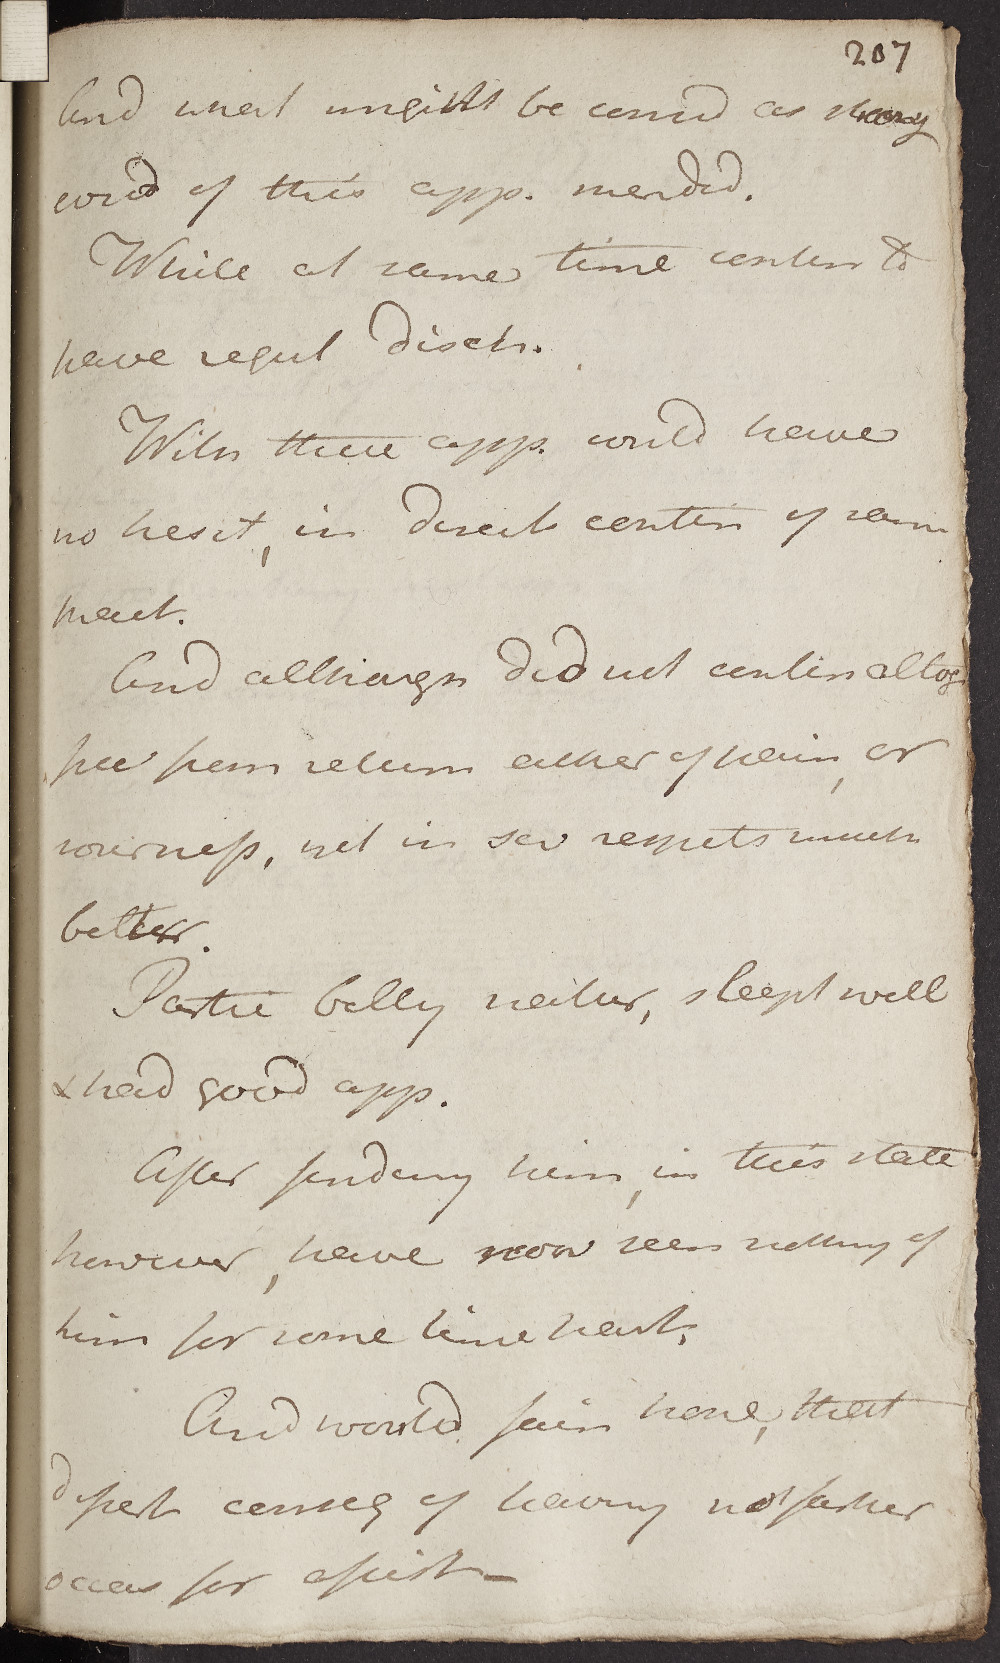 207
And what might be consid as strong
evid of this app. mended.
While at same time contin to
have regul disch.
With these app. could have
no hesit, in direct contin of same
treat.
And although did not contin altog
free from return either of pain, or
sourness, yet in sev respects much
better.
Partic belly neither, slept well
& had good app.
After finding him, in this state
however, have now seen nothing of
him for some time heart.
And would fain hope, that
depart conseq of having not farther
occas for assist—